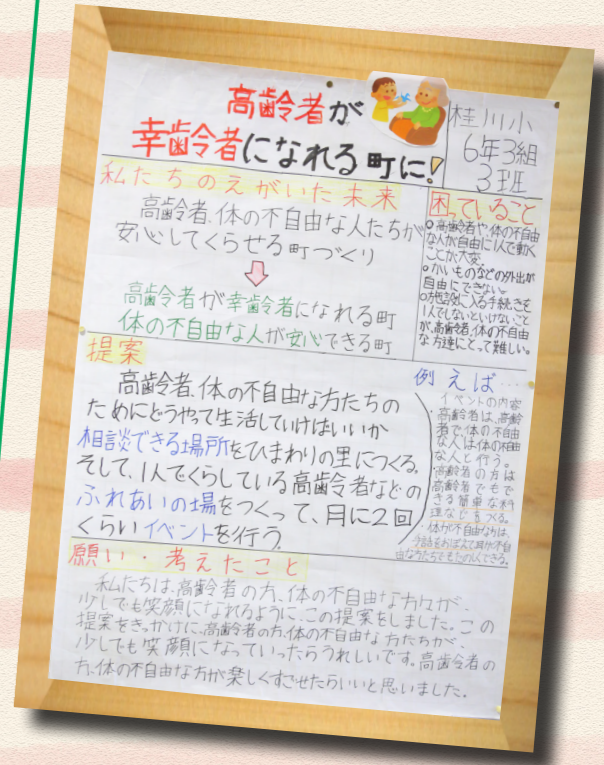 高齢者が
幸齢者になれる町に!
桂川小
6年3組
3班
私たちのえがいた未来
高齢者、体の不自由な人たちが
安心してくらせる町づくり
高齢者が幸齢者になれる町
体の不自由な人が安心できる町
困っていること
○高齢者や、体の不自由
な人が自由に1人で動く
ことが大変。
○かいものなどの外出が
自由にできない。
○施設に入る手続きを
1人でしないといけないこと
が、高齢者、体の不自由
な方達にとって難しい。
提案
高齢者、体の不自由な方たちの
ためにどうやって生活していけばいいか
相談できる場所をひまわりの里につくる。
そして、1人でくらしている高齢者などの
ふれあいの場をつくって、月に2回
くらいイベントを行う。
例えば……
イベントの内容
・高齢者は、高齢
者で、体の不自由
な人は体の不自由
な人と行う。
・高齢者の方は
高齢者でもで
きる簡単な料
理などをつくる。
・体が不自由な方は、
手話をおぼえて耳が不自
由な方たちでもたのしくできる。
願い・考えたこと
私たちは、高齢者の方、体の不自由な方々が、
少しでも笑顔になれるように、この提案をしました。この
提案をきっかけに、高齢者の方、体の不自由な方たちが、
少しでも笑顔になっていったらうれしいです。高齢者の
方、体の不自由な方が楽しくすごせたらいいと思いました。